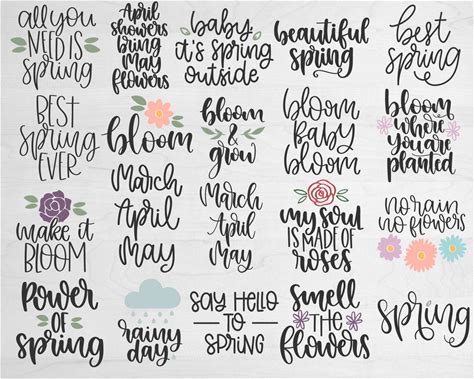 all you
need is
spring
April
showers
bring
may
flowers
baby
it's spring
outside
beautiful
spring
best
spring
BEST
spring
EVER
bloom
bloom
&
grow
bloom
baby
bloom
bloom
where
you are
planted
make it
BLOOM
March
April
May
March
April
May
my soul
is made of
roses
no rain
no flowers
Power
of
spring
rainy
day
SAY HELLO
TO
SPRING
smell
THE
flowers
spring